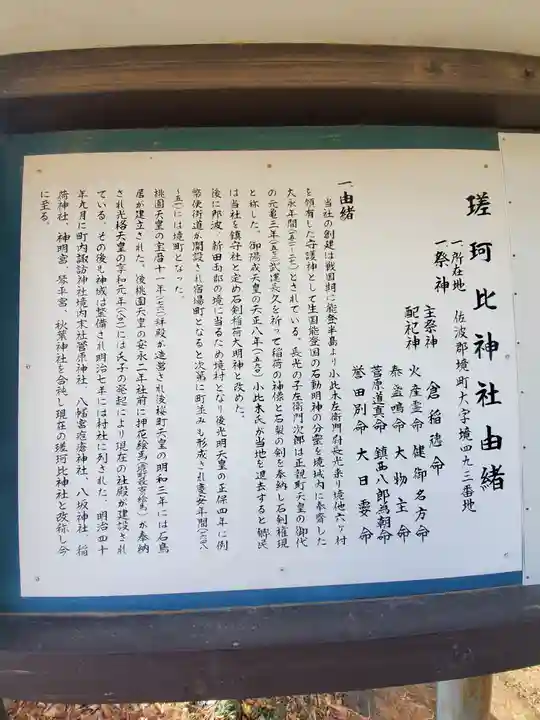 瑳珂比神社由緒
一、所在地　佐波郡境町大字境四九三番地
一、祭神
主祭神　倉稲魂命
配祀神　火産霊命　健御名方命
素盞鳴命　大物主命
菅原道真命　鎮西八郎為朝命
誉田別命　大日孁命
一、由緒
当社の創建は戦国期に能登半島より小比木左衛門尉長光来り境他六ヶ村
を領有した守護神として生国能登国の石動明神の分霊を境城内に奉齋した
大永年間(一五二一～二七)とされている。長光の子左衛門次郎は正親町天皇の御代
の元亀三年(一五七二)武運長久を祈って稲荷の神像と石製の剣を奉納し石剣権現
と称した。御陽成天皇の天正八年(一五八〇)小比木氏が当地を退去すると郷民
は当社を鎮守社と定め石剣稲荷大明神と改めた。
後に那波、新田両郡の境に当るため境村となり後光明天皇の正保四年に例
幣使街道が開設され宿場町となると次第に町並みも形成され慶安年間(一六四八
～五一)には境町となった。
桃園天皇の宝暦十一年(一七六一)拝殿が造営され後桜町天皇の明和三年には石鳥
居が建立された。後桃園天皇の安永二年社前に押花絵馬が奉納
され光格天皇の享和元年(一八〇一)には氏子の発起により現在の社殿が建設され
ている。その後も神域は整備され明治七年には村社に列された。明治四十
年九月に町内諏訪神社境内末社菅原神社、八幡宮疱瘡神社、八坂神社、稲
荷神社、神明宮、琴平宮、秋葉神社を合祀し現在の瑳珂比神社と改称し今
に至る。